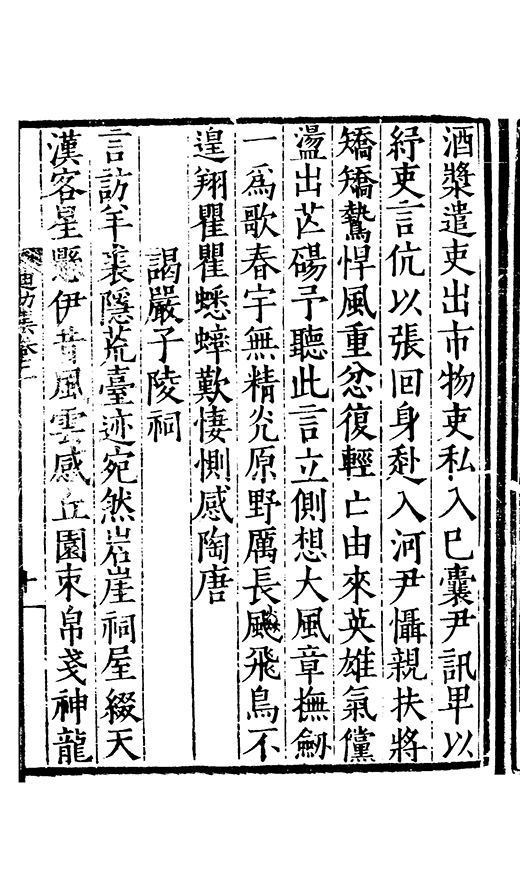 酒漿遣吏出市物吏私入巳囊尹訊畢以
紓吏言伉以張回身赴入河尹懾親扶將
矯矯驁悍風重忿復輕亡由來英雄氣儻
盪出芒碭予聽此言立側想大風章撫劒
一爲歌春宇無精光原野厲長飈飛鳥不
遑翔瞿瞿蟋蟀歎悽惻感陶唐
謁嚴子陵祠
言訪羊裘隱荒臺迹宛然岩崖祠屋綴天
漢客星懸伊昔風雲感丘園束帛戔神龍